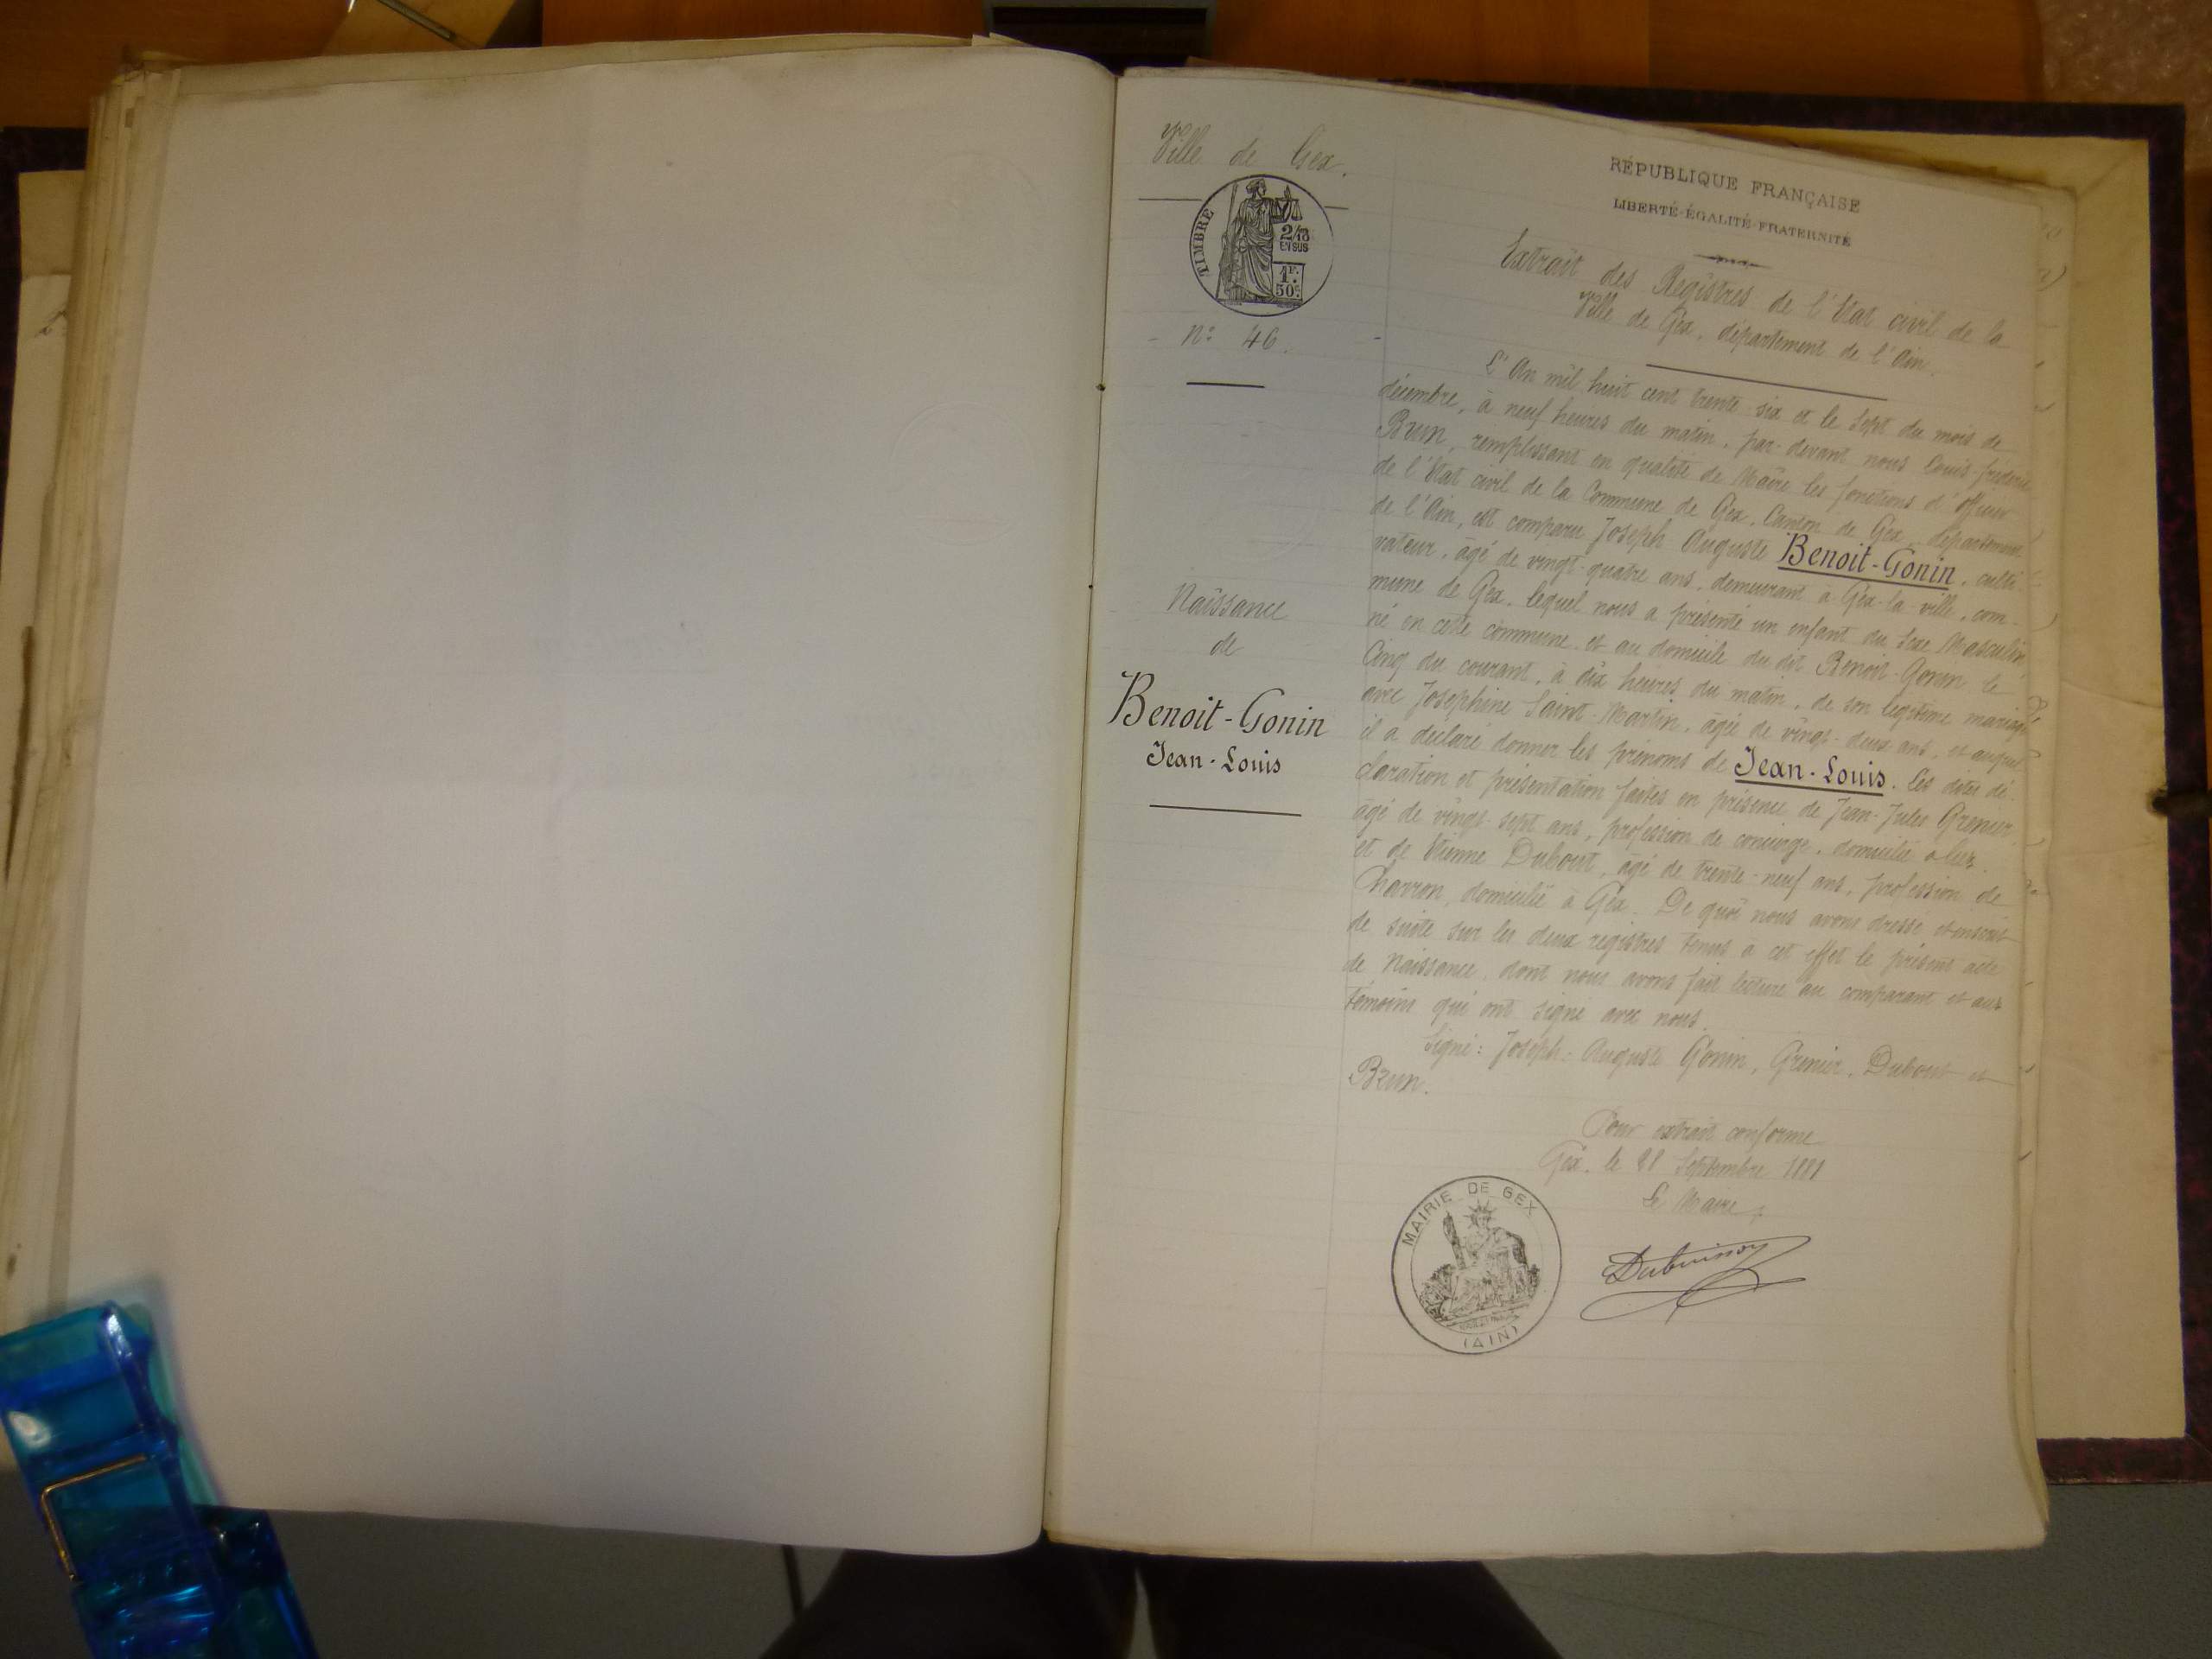 Ville de Gex.
TIMBRE
2/10
EN SUS
1F.
50c.
N° 46.
Naissance
de
Benoit-Gonin
Jean-Louis
RÉPUBLIQUE FRANÇAISE
LIBERTÉ-ÉGALITÉ-FRATERNITÉ
Extrait des Registres de l'Etat civil de la
Ville de Gex, département de l'Ain.
L'An mil huit cent trente-six et le sept du mois de
décembre, à neuf heures du matin, par-devant nous Louis-frédéric
Brun, remplissant en qualité de Maire les fonctions d'officier
de l'Etat civil de la Commune de Gex, Canton de Gex, département
de l'Ain, est comparu Joseph Auguste Benoit-Gonin, culti-
vateur, âgé de vingt-quatre ans, demeurant à Gex-la-ville, com-
mune de Gex, lequel nous a présenté un enfant du sexe Masculin
né en cette commune et au domicile du dit Benoit-Gonin le
Cinq du courant, à dix heures du matin, de son légitime mariage
avec Josephine Saint-Martin, âgée de vingt-deux ans, et auquel
il a déclaré donner les prénoms de Jean-Louis. Les dites dé-
claration et présentation faites en présence de Jean-Jules Grenier
âgé de vingt-sept ans, profession de concierge, domicilié à Gex
et de Etienne Dubout, âgé de trente-neuf ans, profession de
Charron, domicilié à Gex. De quoi nous avons dressé et inscrit
de suite sur les deux registres tenus à cet effet le présent acte
de Naissance dont nous avons fait lecture au comparant et aux
témoins qui ont signé avec nous.
Signé: Joseph-Auguste Gonin, Grenier, Dubout et
Brun.
Pour extrait conforme
Gex, le 28 Septembre 1881
Le Maire,
Dubuisson
MAIRIE DE GEX
(AIN)